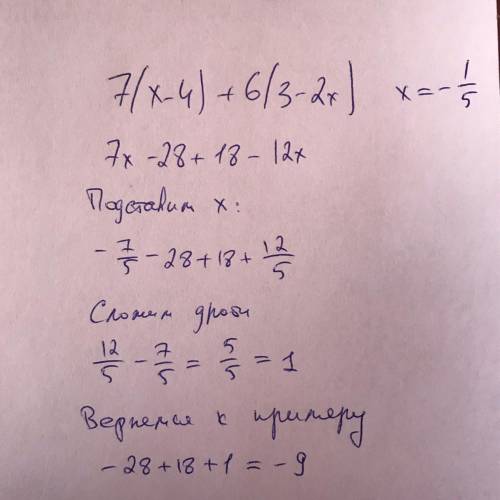 7(x-4) + 6(3-2x) x = -1/5
7x - 28 + 18 - 12x
Подставим x:
-7/5 - 28 + 18 + 12/5
Сложим дроби
12/5 - 7/5 = 5/5 = 1
Вернемся к примеру
-28 + 18 + 1 = -9